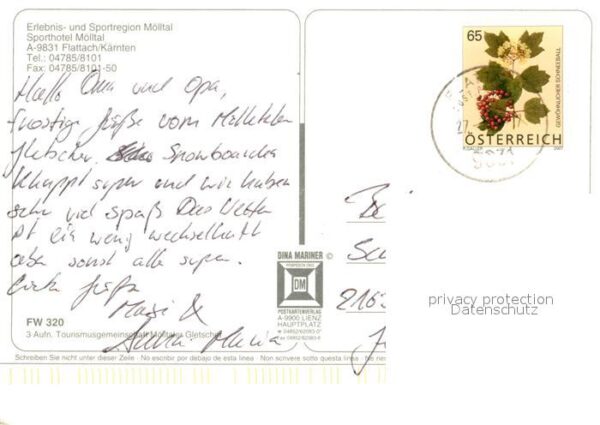 Erlebnis- und Sportregion Mölltal
Sporthotel Mölltal
A-9831 Flattach/Kärnten
Tel.: 04785/8101
Fax: 04785/8101-50
Hallo Oma und Opa,
frostige Grüße vom Mölltaler
Gletscher. Snowboarden
klappt super und wir haben
sehr viel Spaß. Das Wetter
ist ein wenig wechselhaft
aber sonst alles super.
Eure
&
FW 320
3 Aufn. Tourismusgemeinschaft Mölltaler Gletscher
Schreiben Sie nicht unter dieser Zeile - No escribir por debajo de esta línea - Non scrivere sotto questa linea - No
DINA MARINER ©
DM
POSTKARTENVERLAG
A-9900 LIENZ
HAUPTPLATZ
65
GEWÖHNLICHER SCHNEEBALL
ÖSTERREICH
2007
privacy protection
Datenschutz